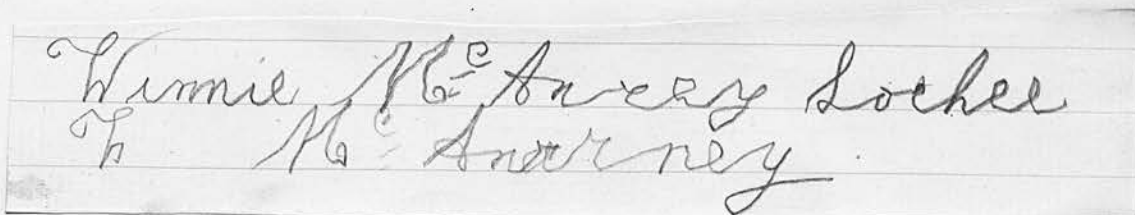 Winnie Mc Anrey Lochee
W Mc Anarney